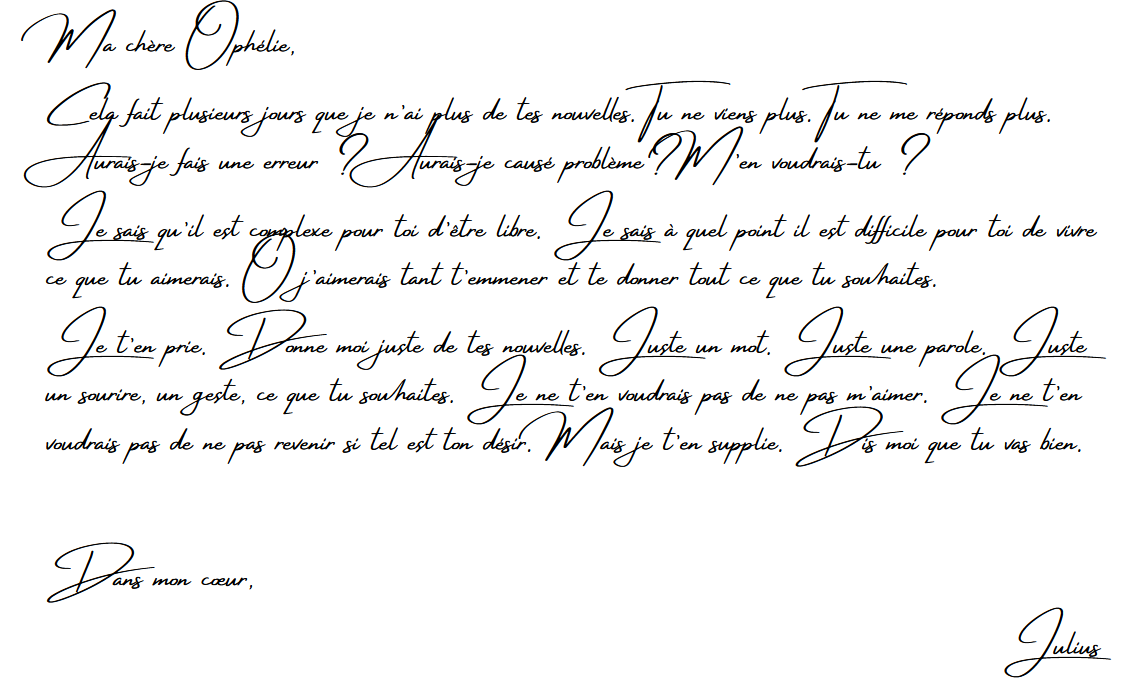 Ma chère Ophélie,
Cela fait plusieurs jours que je n'ai plus de tes nouvelles. Tu ne viens plus. Tu ne me réponds plus.
Aurais-je fais une erreur ? Aurais-je causé problème ? M'en voudrais-tu ?
Je sais qu'il est complexe pour toi d'être libre. Je sais à quel point il est difficile pour toi de vivre
ce que tu aimerais. O j'aimerais tant t'emmener et te donner tout ce que tu souhaites.
Je t'en prie. Donne moi juste de tes nouvelles. Juste un mot. Juste une parole. Juste
un sourire, un geste, ce que tu souhaites. Je ne t'en voudrais pas de ne pas m'aimer. Je ne t'en
voudrais pas de ne pas revenir si tel est ton désir. Mais je t'en supplie. Dis moi que tu vas bien.
Dans mon cœur,
Julius